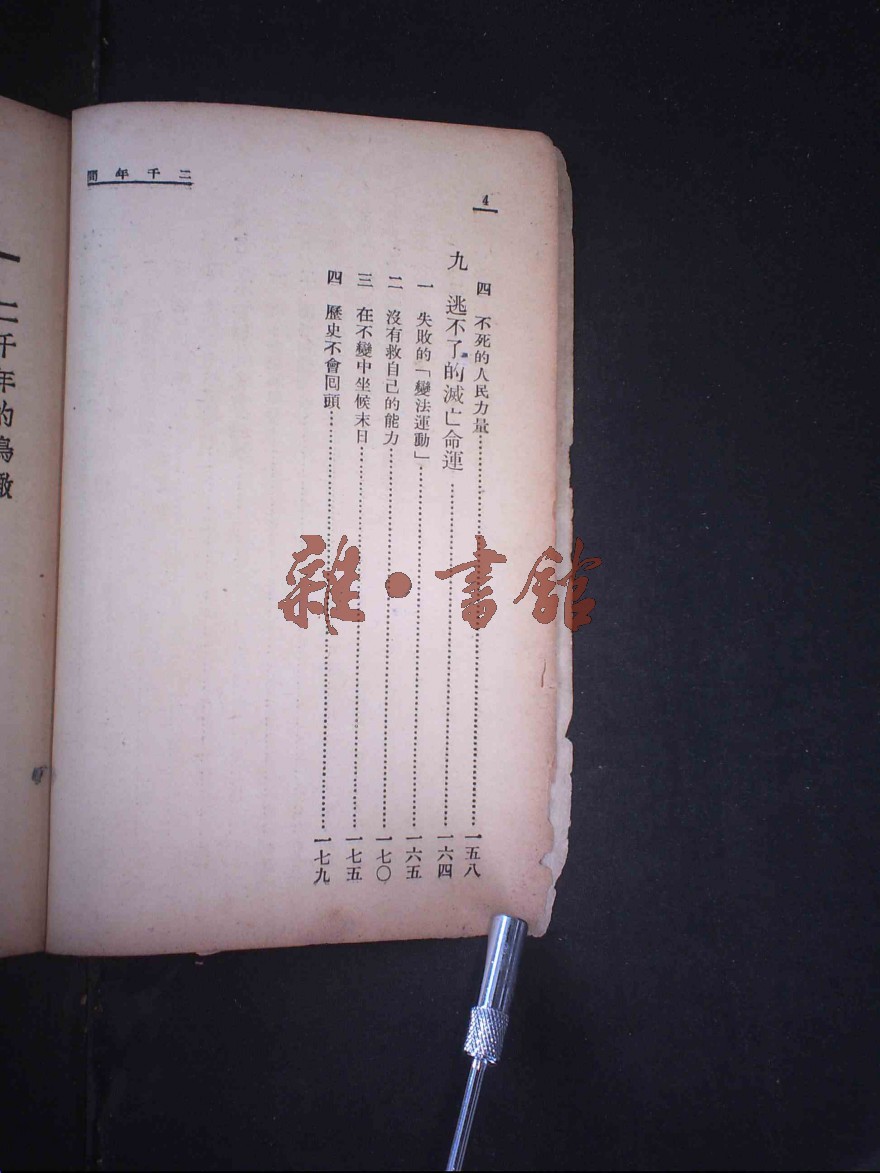 二千年間
4
四 不死的人民力量……一五八
九 逃不了的滅亡命運……一六四
一 失敗的「變法運動」……一六五
二 沒有救自己的能力……一七〇
三 在不變中坐候末日……一七五
四 歷史不會回頭……一七九
一 二千年的鳥瞰
雜·書館